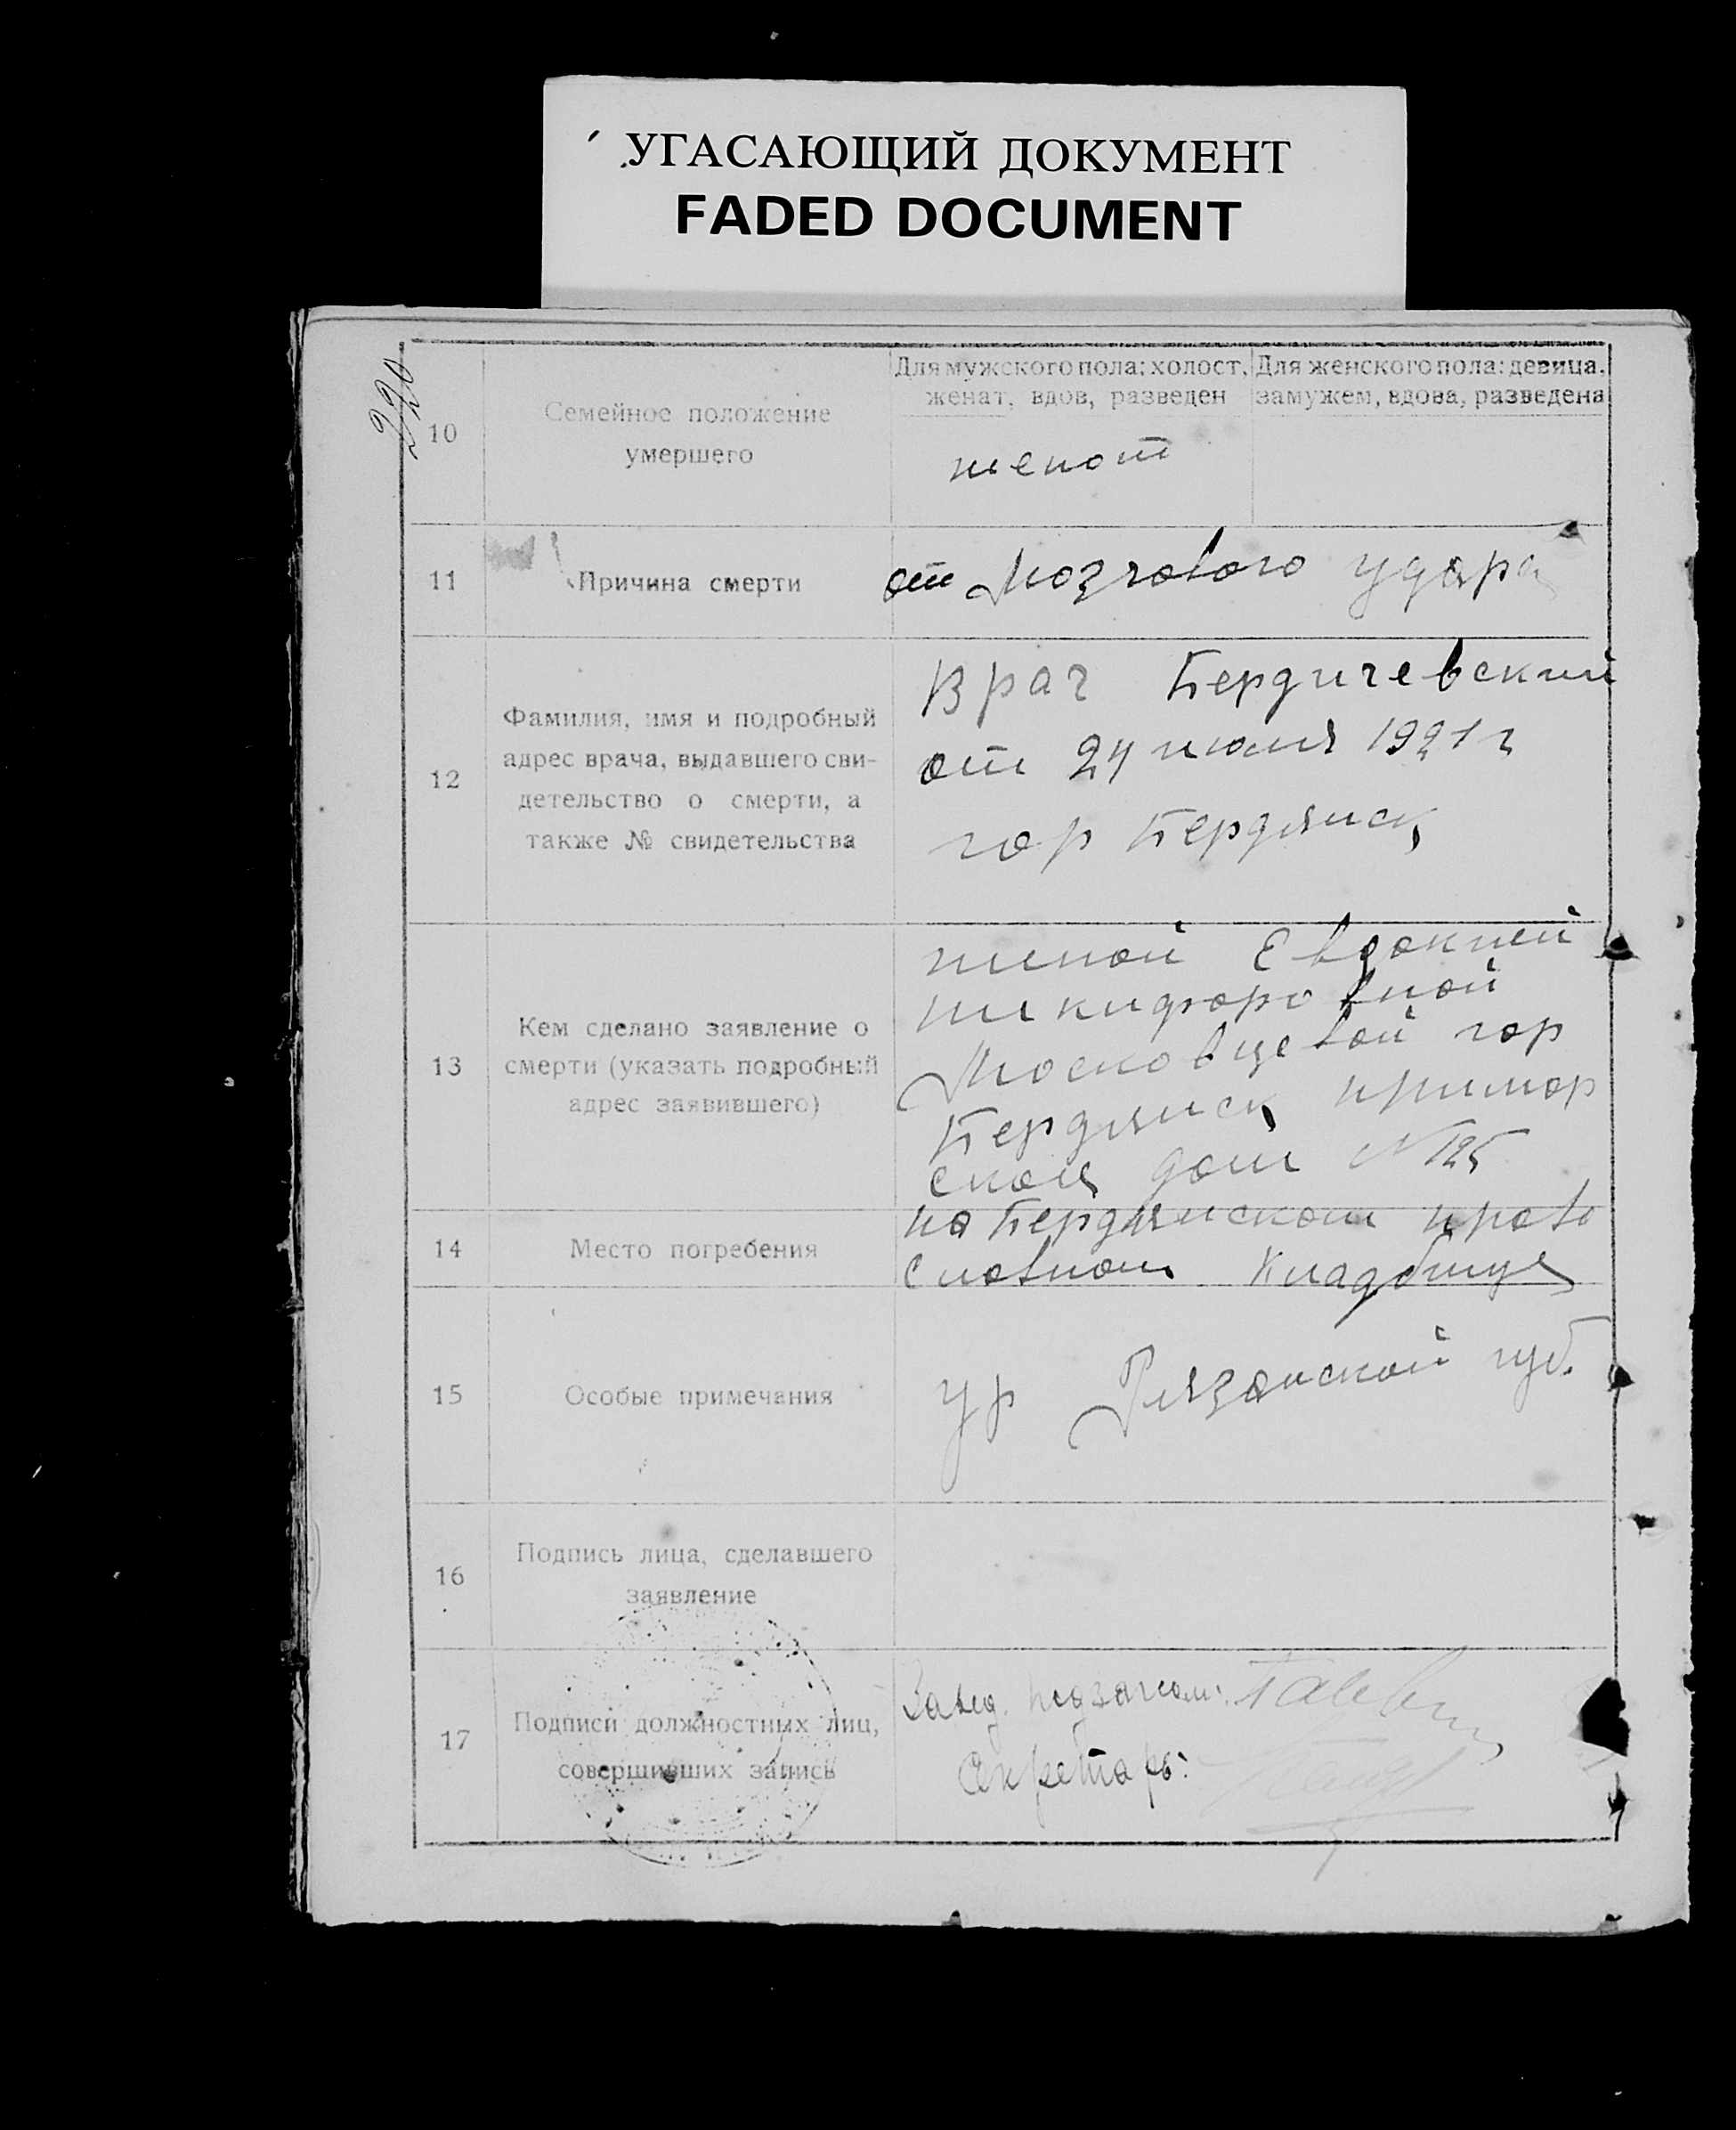 УГАСАЮЩИЙ ДОКУМЕНТ
FADED DOCUMENT
220
10
Семейное положение
умершего
Для мужского пола: холост,
женат, вдов, разведен
Для женского пола: девица,
замужем, вдова, разведена
женат
11
Причина смерти
от Мозгового удара
12
Фамилия, имя и подробный
адрес врача, выдавшего сви-
детельство о смерти, а
также № свидетельства
Врач Бердичевский
от 24 июля 1921 г
гор Бердянск
13
Кем сделано заявление о
смерти (указать подробный
адрес заявившего)
женой Евдокией
Никифоровной
Московцевой гор
Бердянск примор
ской дом N 125
14
Место погребения
на Бердянском право
славном Кладбище
15
Особые примечания
ур Рязанской губ.
16
Подпись лица, сделавшего
заявление
17
Подписи должностных лиц,
совершивших запись
Завед. подзагсом:
Секретарь: